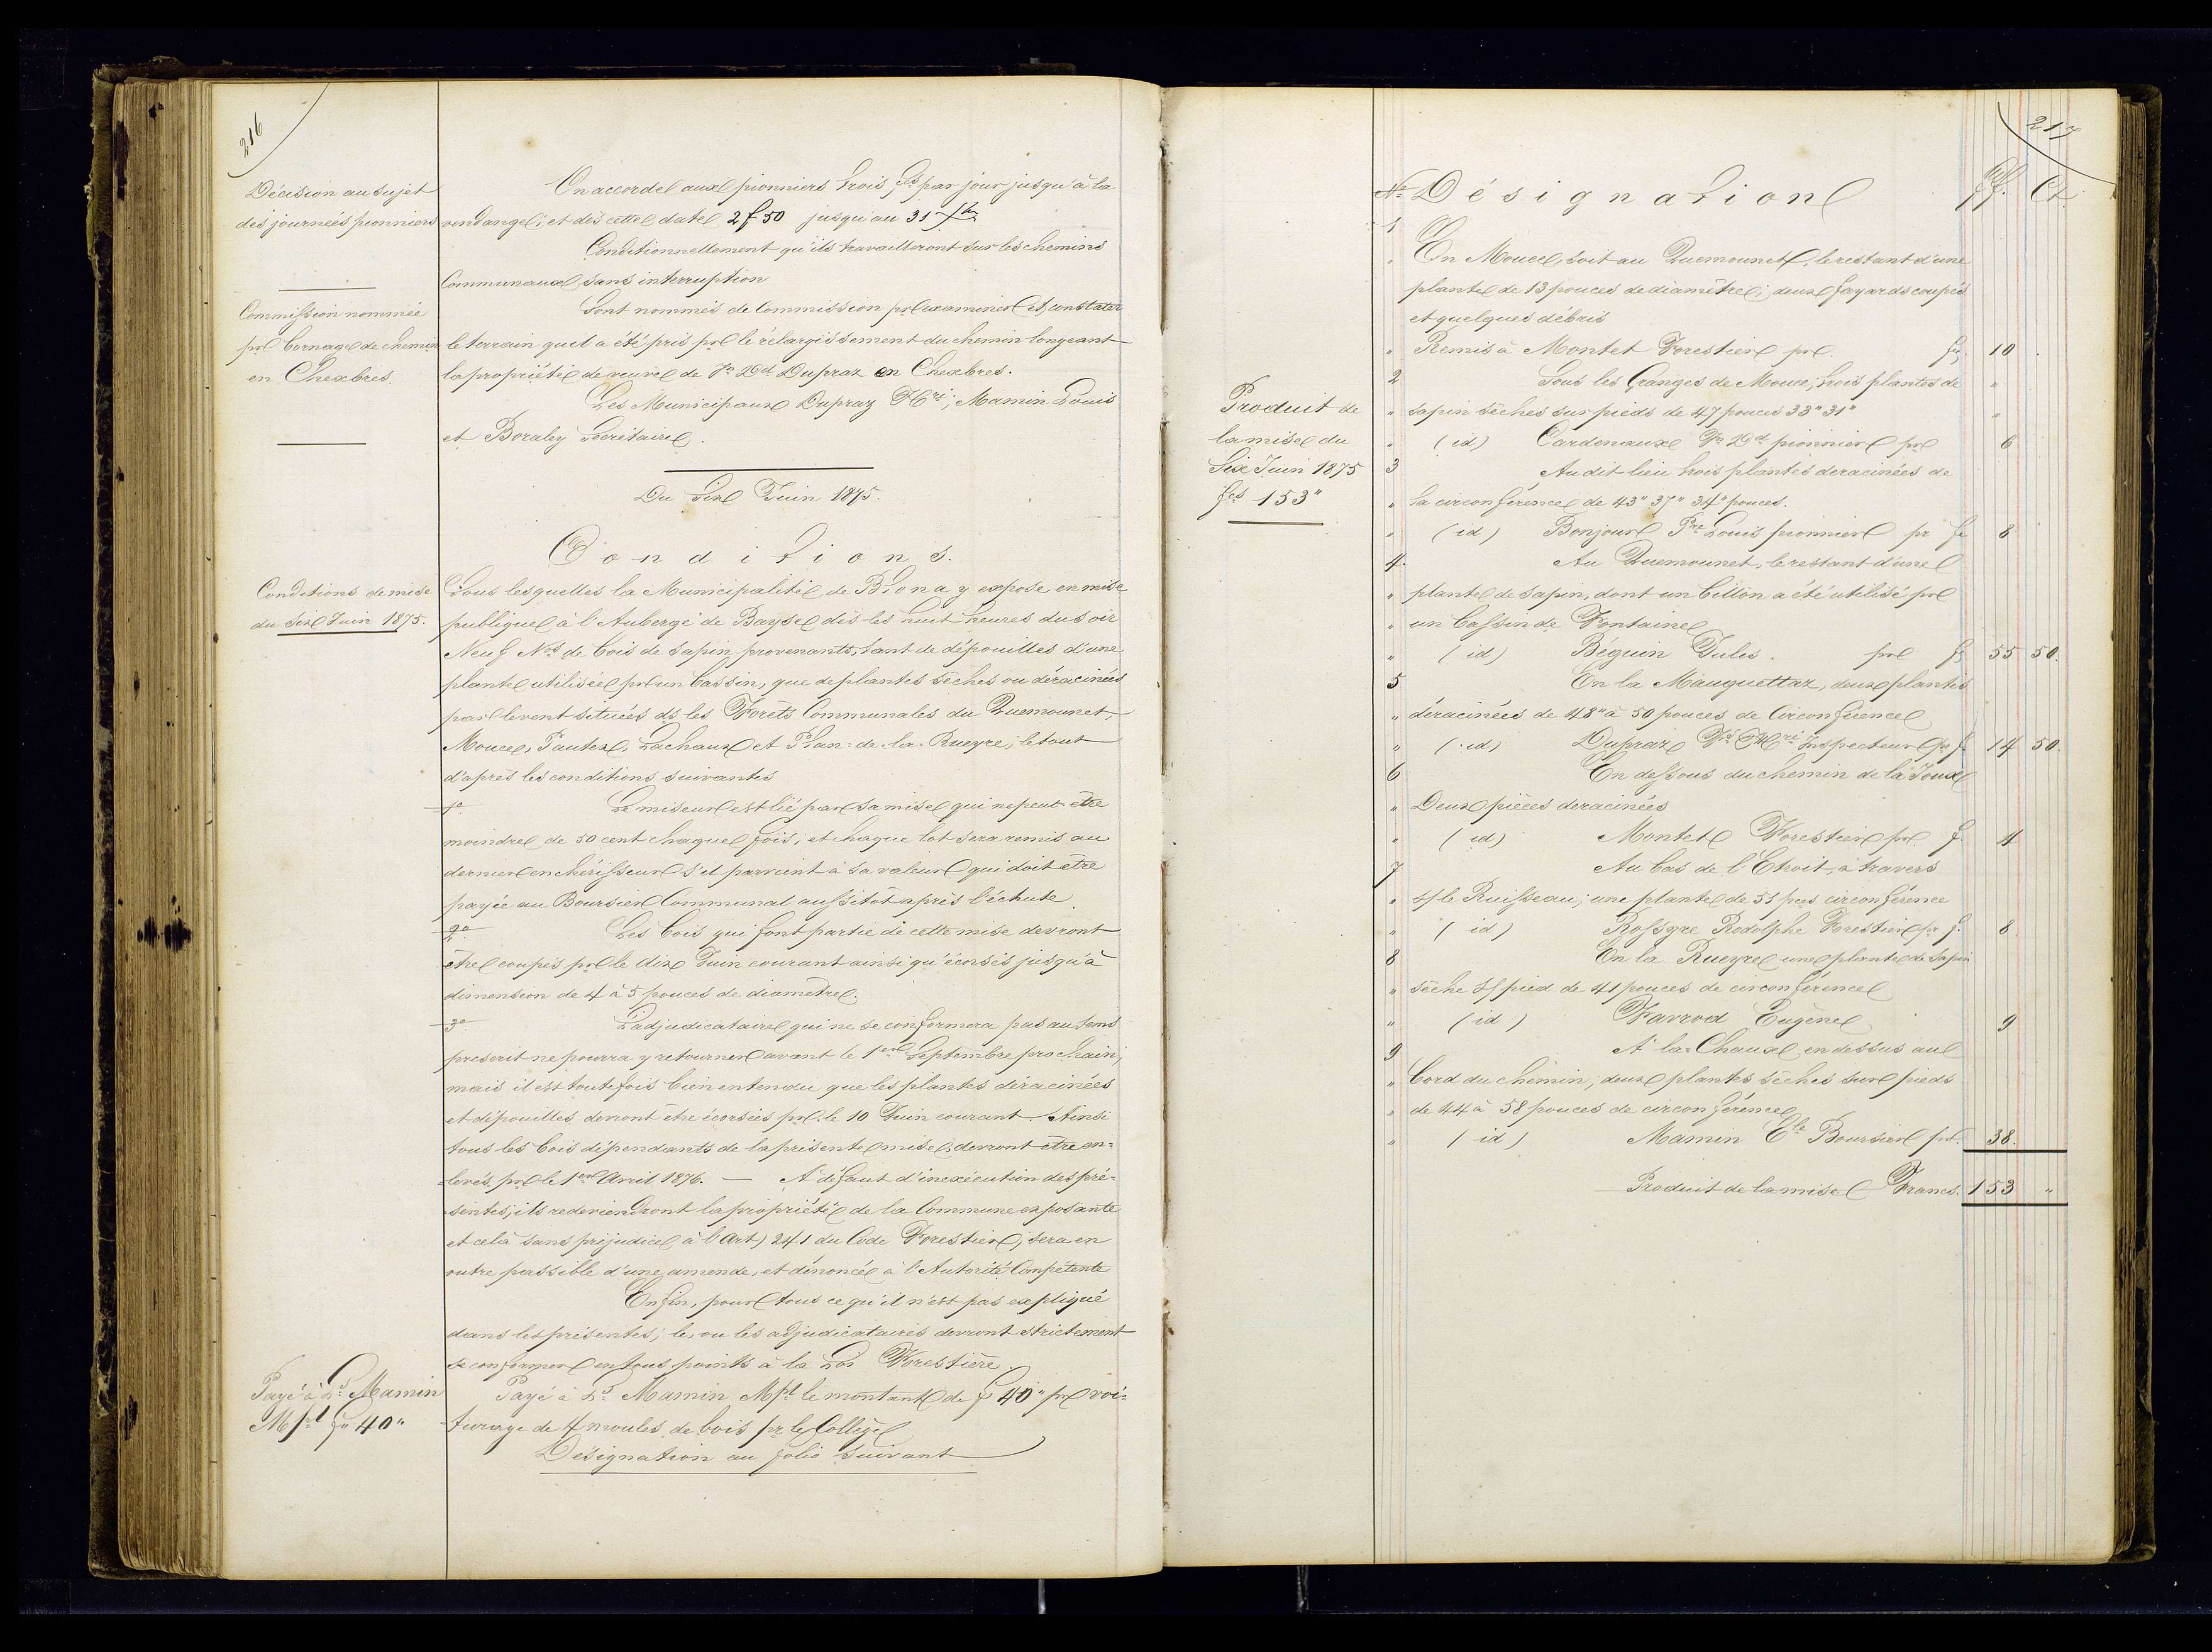 216
Décision au sujet
des journées pionniers
On accorde aux pionniers trois fcs par jour jusqu'à la
vendange; et dès cette date 2 f 50 jusqu'au 31 Xbre
Conditionnellement qu'ils travailleront sur les chemins
Communaux, sans interruption
Commission nommée
pr bornage de chemin
en Chexbres.
Sont nommés de Commission pr examiner et constater
le terrain qu'il a été pris pr le rélargissement du chemin longeant
la propriété de veuve de Fs Ld Dupraz en Chexbres.
Les Municipaux Dupraz Hri; Mamin Louis
et Boraley Secrétaire.
Du Six Juin 1875.
Conditions.
Conditions de mise
du Six Juin 1875.
Sous lesquelles la Municipalité de Blonay expose en mise
publique à l'Auberge de Bayse dès les huit heures du soir
Neuf Nos de bois de sapin provenants, tant de dépouilles d'une
plante utilisée pr un bassin, que de plantes sèches ou déracinées
par le vent situées ds les Forêts Communales du Quemounet,
Mouce, Pautex, Lachaux et Plan-de-la-Rueyre; le tout
d'après les conditions suivantes
1o Le miseur est lié par sa mise qui ne peut être
moindre de 50 cent chaque fois; et chaque lot sera remis au
dernier enchérisseur s'il parvient à sa valeur qui doit être
payée au Boursier Communal aussitôt après l'échute.
2o Les bois qui font partie de cette mise devront
être coupés pr le dix Juin courant ainsi qu'écorsés jusqu'à
dimension de 4 à 5 pouces de diamètre.
3o L'adjudicataire qui ne se conformera pas au tems
prescrit ne pourra y retourner avant le 1er Septembre prochain;
mais il est toutefois bien entendu que les plantes déracinées
et dépouilles devront être écorsées pr le 10 Juin courant. Ainsi
tous les bois dépendants de la présente mise, devront être en=
=levés, pr le 1er Avril 1876. — A défaut d'inexécution des pré=
sentes; ils redeviendront la propriété de la Commune exposante
et celà sans préjudice, à l'Art) 241 du Code Forestier, sera en
outre passible d'une amende, et dénoncé à l'Autorité Compétente
Enfin, pour tous ce qu'il n'est pas expliqué
dans les présentes; le, ou les adjudicataires devront strictement
se conformer en tous points à la Loi Forestière.
Payé à Ls Mamin
Mpl fs 40"
Payé à Ls Mamin Mpl le montant de f 40" pr voi=
turage de 4 moules de bois pr le Collège
Désignation au folio suivant
217
No Désignation ff. Ct.
Produit de
la mise du
Six Juin 1875
fcs 153"
1
" En Mouce, soit au Quemounet, le restant d'une
plante de 13 pouces de diamètre; deux fayards coupés
et quelques débris
" Remis à Montet Forestier pr fs 10
2 Sous les Granges de Mouce, trois plantes de "
" sapin sèches sur pieds de 47 pouces 33" 31" "
" (id) Cardenaux Fs Ld pionnier pr 6
3 Au dit lieu trois plantes deracinées de
" la circonférence de 43" 37" 34" pouces.
" (id) Bonjour Pre Louis pionnier pr fs 8
4. Au Quemounet, le restant d'une
" plante de sapin, dont un billon a été utilisé pr
" un bassin de Fontaine
" (id) Béguin Jules. pr fs 55 50.
5 En la Mauguettaz, deux plantes
" déracinées de 48" à 50 pouces de Circonférence
" (id) Dupraz Fs Hri Inspecteur pr f. 14 50.
6 En dessous du chemin de la Joux
" Deux pièces deracinées
" (id) Montet Forestier pr f. 4
7 Au bas de l'Etroit, à travers
" s/ le Ruisseau; une plante de 51 pces circonférence
" (id) Rossyre Rodolphe Forestier pr f. 8
8 En la Rueyre une plante de sapin
" sèche s/ pied de 41 pouces de circonférence
" (id) Favrod Eugène 9
9 A la-Chaux, en dessus au
" bord du chemin; deux plantes sèches sur pieds
" de 44 à 58 pouces de circonférence
" (id) Mamin Ele Boursier pr 38.
Produit de la mise Francs. 153 "